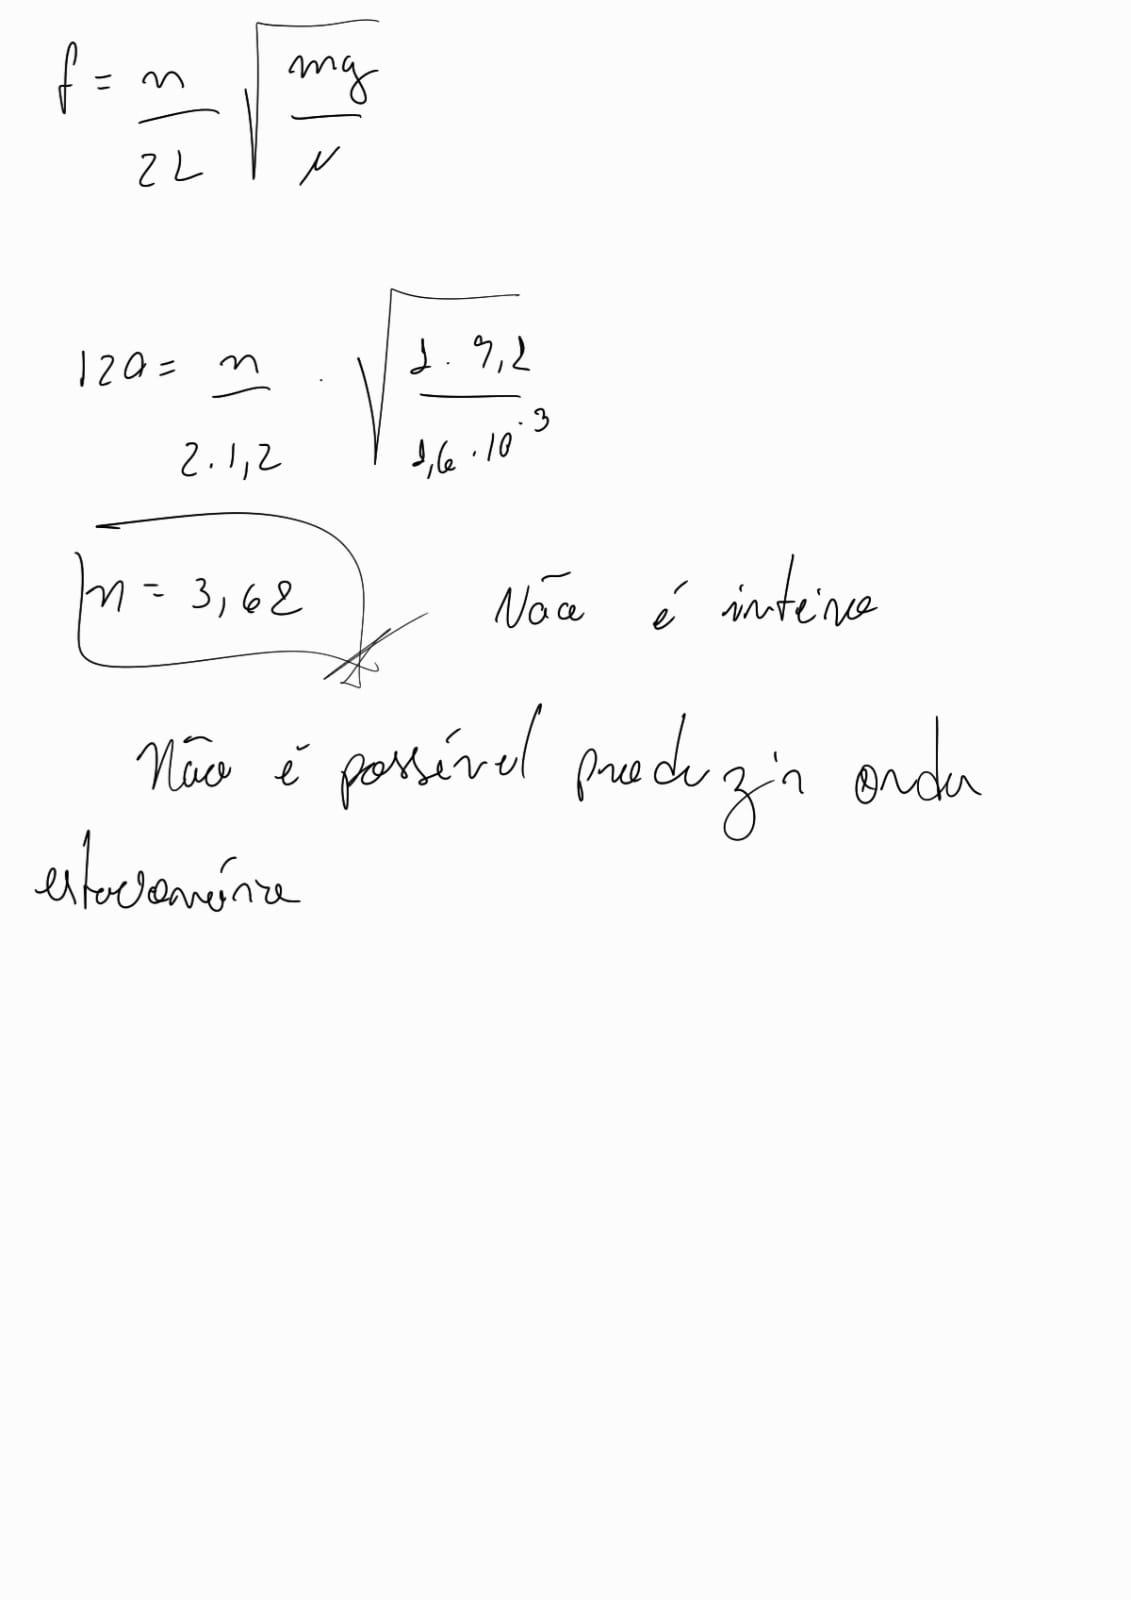 f = n/2L √(mg/μ)
120 = n/2.1,2 . √(1 . 9,8/1,6 . 10⁻³)
n = 3,68 Não é inteiro
Não é possível produzir onda
estacionária